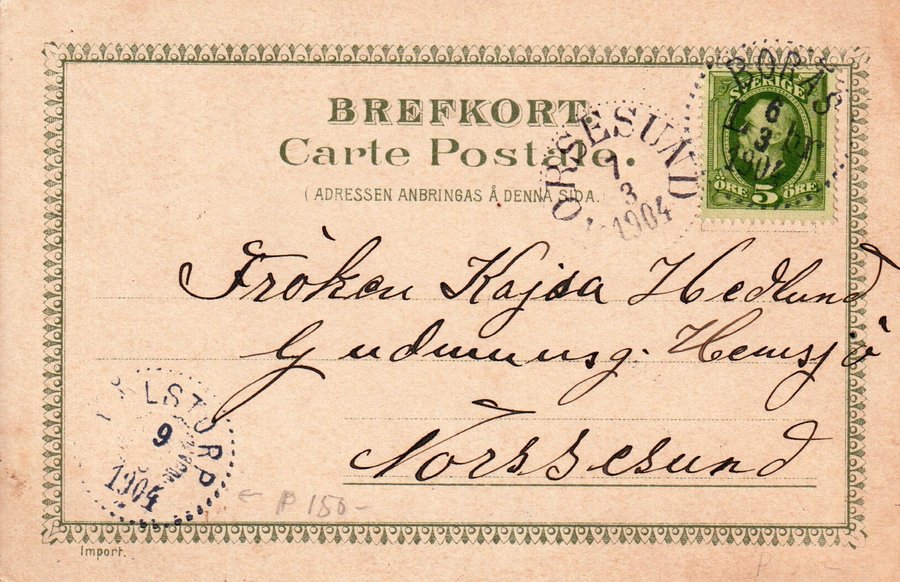 BREFKORT.
Carte Postale.
(ADRESSEN ANBRINGAS Å DENNA SIDA.
SVERIGE
5
ÖRE ÖRE
BORÅS
6
3
1904
ORSESUND
7
3
1904
Fröken Kajsa Hedlund
Gudmunsg. Hemsjö
Norssesund
LSTORP
9
1904
P 150-
Import.